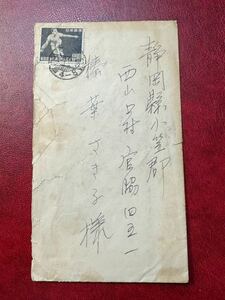 静岡縣小笠郡
西山口村 宮脇 五一
榛葉さき子様
日本郵便